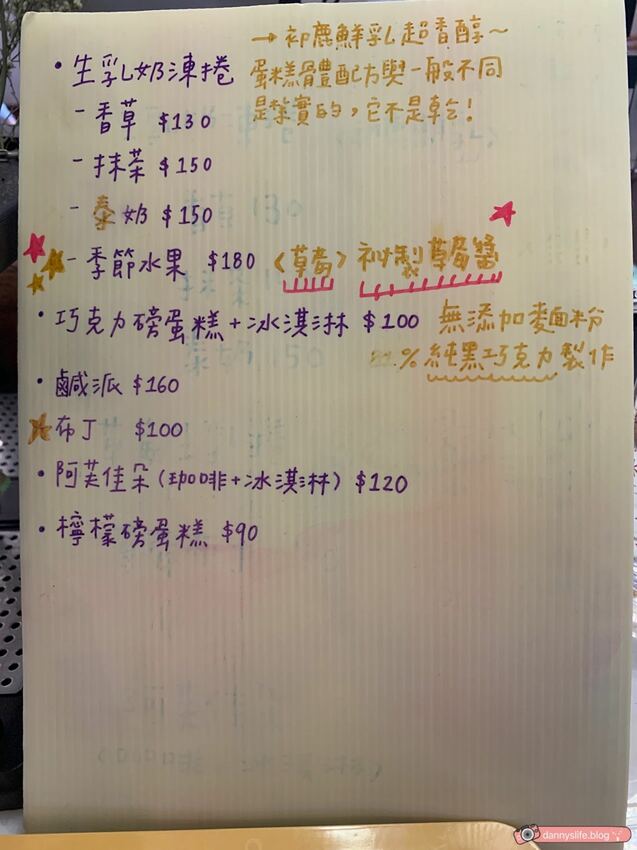 →初鹿鮮乳超香醇～
• 生乳奶凍捲 蛋糕體配方與一般不同
- 香草 $130 是紮實的，它不是乾！
- 抹茶 $150
- 泰奶 $150
- 季節水果 $180 〈草莓〉初製草莓醬
• 巧克力磅蛋糕+冰淇淋 $100 無添加麵粉
% 純黑巧克力製作
• 鹹派 $160
布丁 $100
• 阿芙佳朵(珈啡+冰淇淋) $120
• 檸檬磅蛋糕 $90
dannyslife.blog